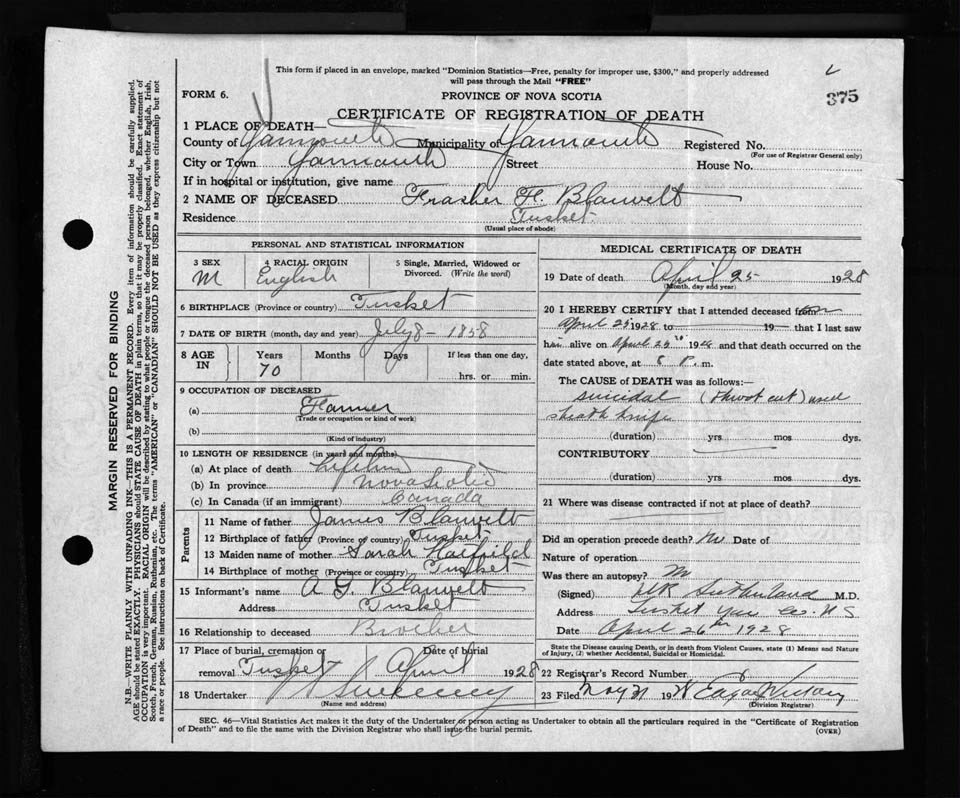 This form if placed in an envelope, marked "Dominion Statistics—Free, penalty for improper use, $300," and properly addressed
will pass through the Mail "FREE"
375
FORM 6.
PROVINCE OF NOVA SCOTIA
CERTIFICATE OF REGISTRATION OF DEATH
1 PLACE OF DEATH—
County of Yarmouth Municipality of Yarmouth Registered No.
(For use of Registrar General only)
City or Town Yarmouth Street House No.
If in hospital or institution, give name
2 NAME OF DECEASED Frasher H. Blauvelt
Residence Tusket
(Usual place of abode)
PERSONAL AND STATISTICAL INFORMATION
3 SEX 4 RACIAL ORIGIN 5 Single, Married, Widowed or
Divorced. (Write the word)
M English
6 BIRTHPLACE (Province or country) Tusket
7 DATE OF BIRTH (month, day and year) July 8 - 1858
8 AGE IN Years Months Days If less than one day,
70 hrs. or min.
9 OCCUPATION OF DECEASED
(a) Farmer
(Trade or occupation or kind of work)
(b)
(Kind of industry)
10 LENGTH OF RESIDENCE (in years and months)
(a) At place of death lifetime
(b) In province Nova Scotia
(c) In Canada (if an immigrant) Canada
Parents
11 Name of father James Blauvelt
12 Birthplace of father (Province or country) Tusket
13 Maiden name of mother Sarah Hatfield
14 Birthplace of mother (Province or country) Tusket
15 Informant's name A G. Blauvelt
Address Tusket
16 Relationship to deceased Brother
17 Place of burial, cremation or Date of burial
removal Tusket April 1928
18 Undertaker Sweeney
(Name and address)
MEDICAL CERTIFICATE OF DEATH
19 Date of death April 25 1928
(Month, day and year)
20 I HEREBY CERTIFY that I attended deceased from
April 25 1928 to 19 that I last saw
him alive on April 25 1928 and that death occurred on the
date stated above, at 8 P. m.
The CAUSE of DEATH was as follows:—
suicidal (throat cut) used
sheath knife
(duration) yrs mos dys.
CONTRIBUTORY
(duration) yrs. mos. dys.
21 Where was disease contracted if not at place of death?
Did an operation precede death? No Date of
Nature of operation
Was there an autopsy? No
(Signed) Sutherland M.D.
Address Tusket Yar Co. N S
Date April 26 1928
State the Disease causing Death, or in death from Violent Causes, state (1) Means and Nature
of Injury, (2) whether Accidental, Suicidal or Homicidal.
22 Registrar's Record Number 8
23 Filed 19
(Division Registrar)
SEC. 46—Vital Statistics Act makes it the duty of the Undertaker or person acting as Undertaker to obtain all the particulars required in the "Certificate of Registration
of Death" and to file the same with the Division Registrar who shall issue the burial permit.
(OVER)
MARGIN RESERVED FOR BINDING
N.B.—WRITE PLAINLY WITH UNFADING INK—THIS IS A PERMANENT RECORD. Every item of information should be carefully supplied.
AGE should be stated EXACTLY. PHYSICIANS should STATE CAUSE OF DEATH in plain terms, so that it may be properly classified. Exact statement of
OCCUPATION is very important. RACIAL ORIGIN will be described by stating to what people or tongue the deceased person belonged, whether English, Irish,
Scotch, French, German, Russian, Ruthenian, etc. The terms "AMERICAN" or "CANADIAN" SHOULD NOT BE USED as they express citizenship but not
a race or people. See instructions on back of Certificate.